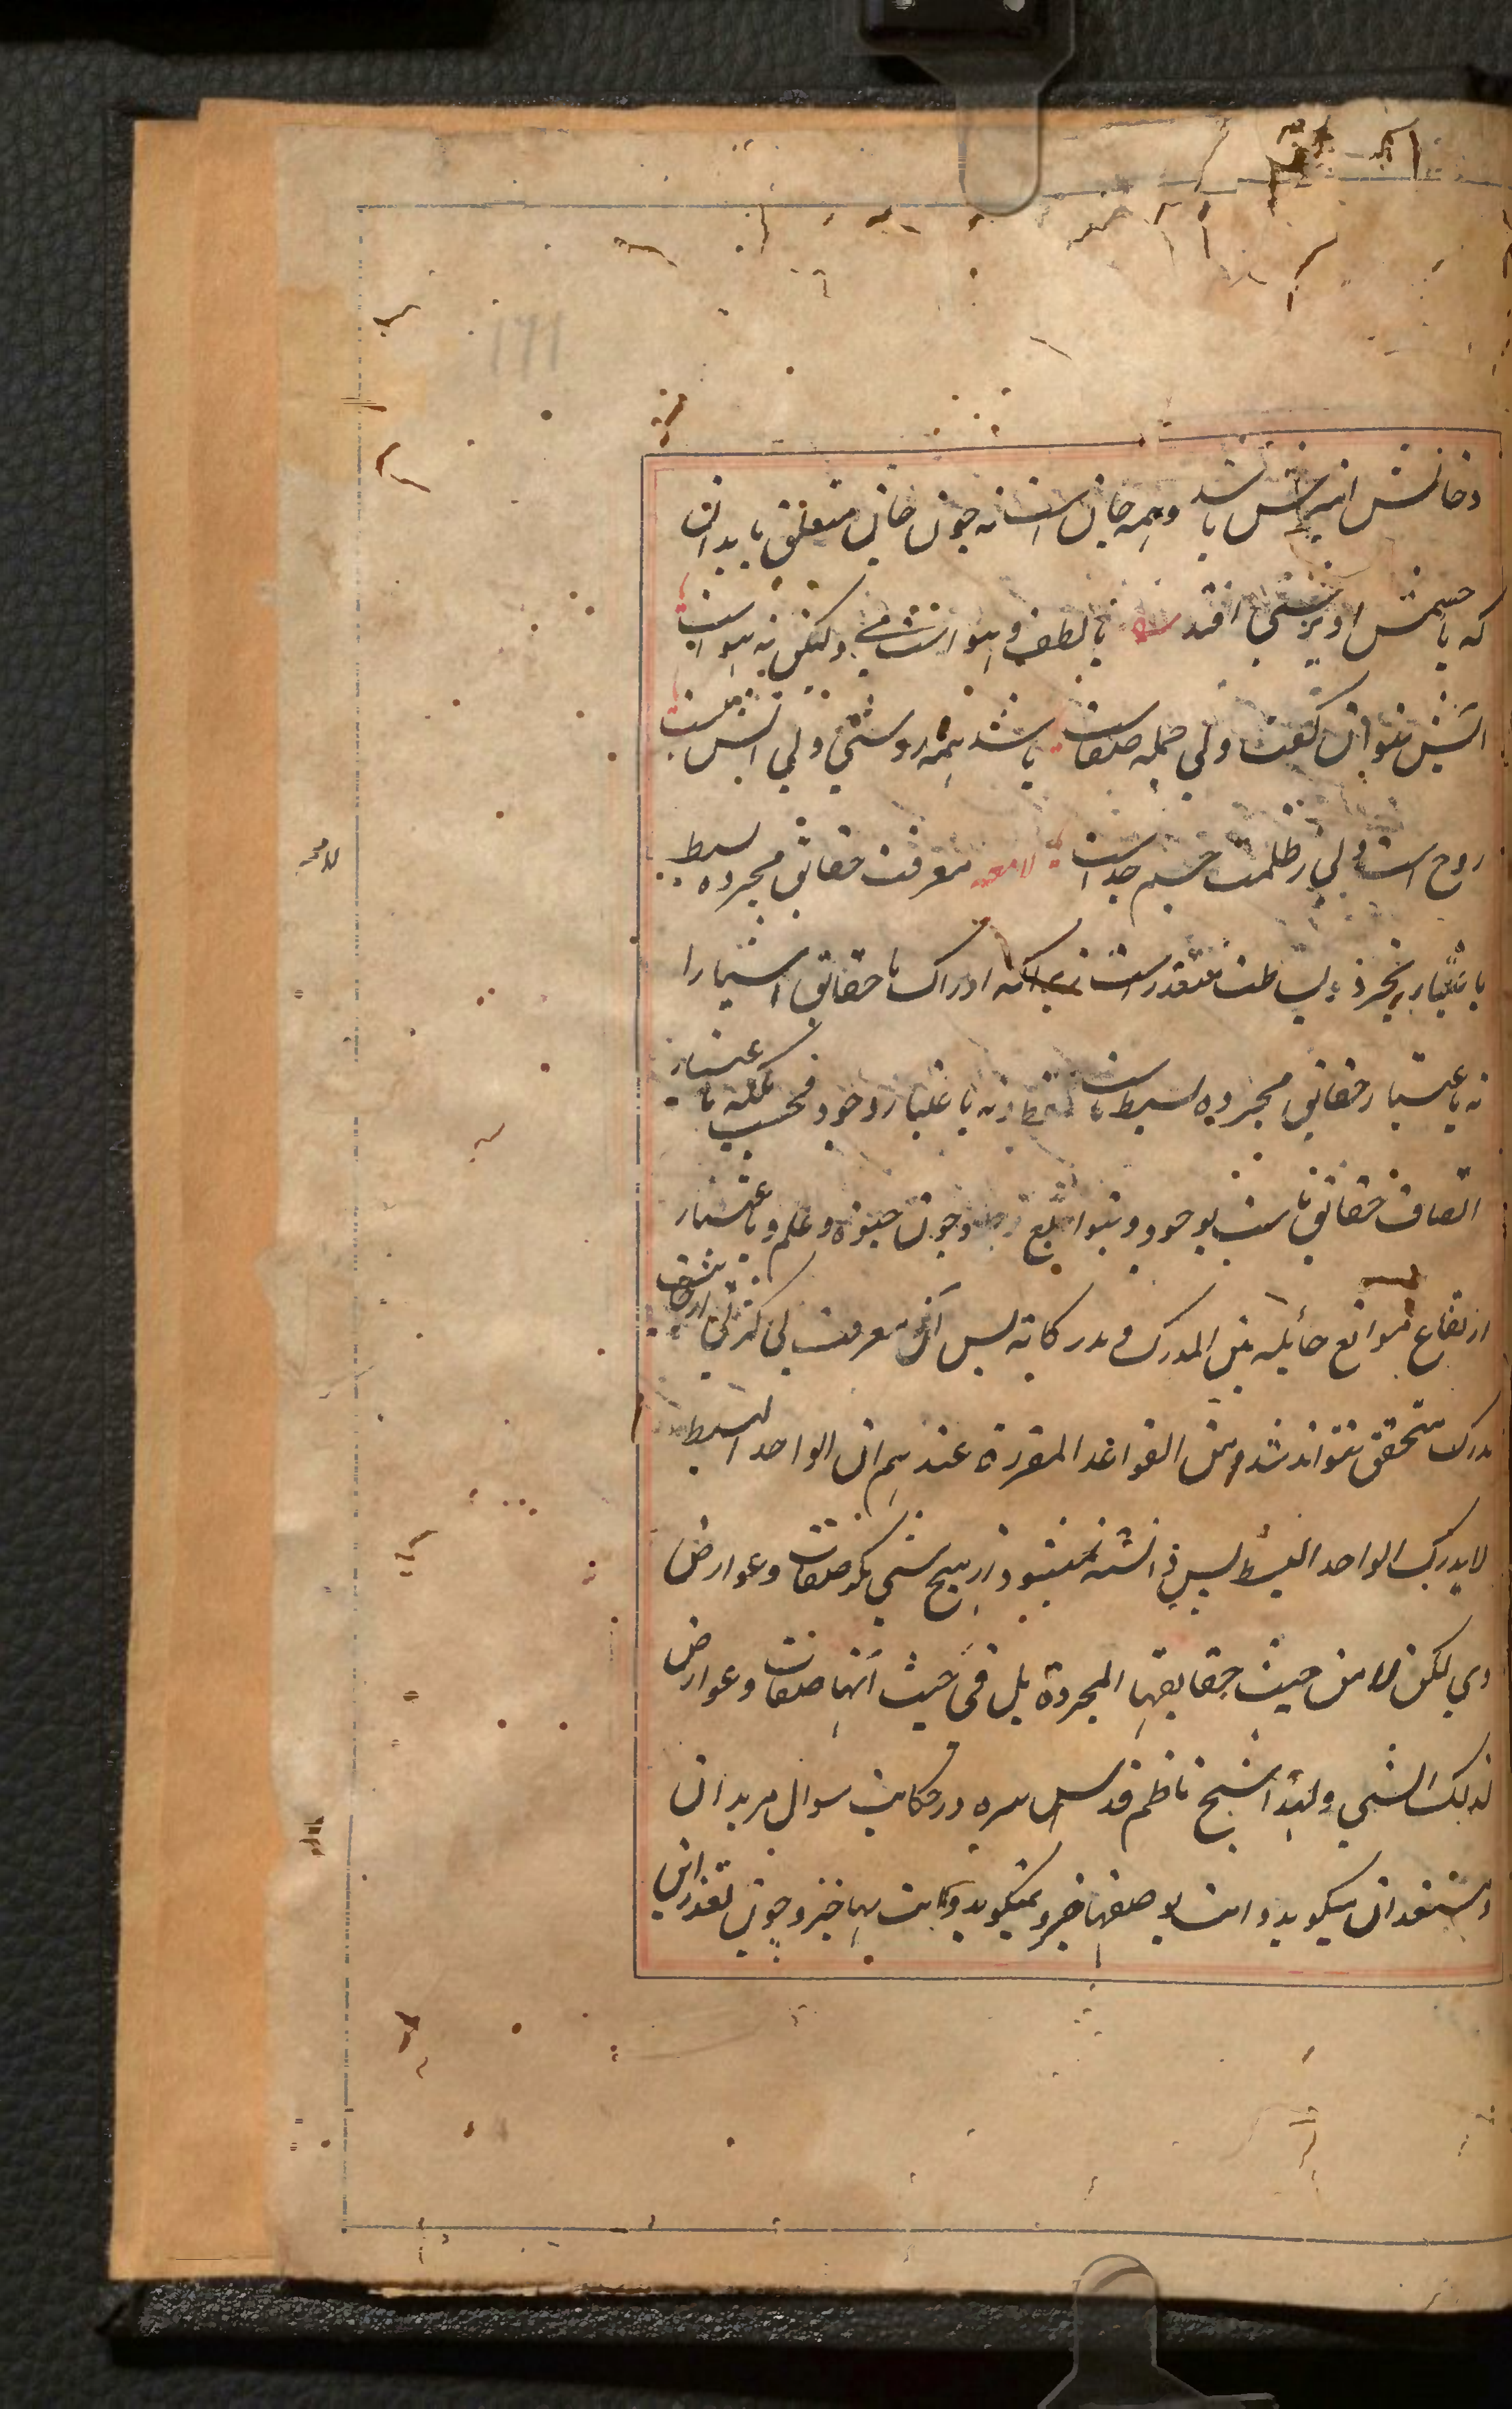 دخانش امیزش باشد و همه جان است نه چون جان متعلق بابدان
که با جسمش اویزشی افتد با لطف و هواست می ولیکن نه هواست
اتش نتوان گفت ولی جمله صفاست باشد همه روشنی ولی اتش نیست
روح است ولی ز ظلمت جسم جداست لامعه معرفت حقائق مجرده بسیط
باعتبار تجرد و بساطت متعذر است زیراکه ادراک ما حقائق اشیا را
نه باعتبار حقائق مجرده بسیط ماست فقط و نه باعتبار وجود فحسب بلکه باعتبار
اتصاف حقائق ماست بوجود و توابع وجود چون حیوة و علم و باعتبار
ارتفاع موانع حائله بین المدرک و مدرکاته پس آن معرفت بی کثرتی از طرف
مدرک متحقق نتواند شد و من القواعد المقررة عندهم ان الواحد البسیط
لا یدرک الواحد البسیط پس دانسته نمیشود از هیچ شی مگر صفات و عوارض
وی لکن لا من حیث حقایقها المجردة بل من حیث انها صفات و عوارض
لذلک الشی و لهذا شیخ ناظم قدس سره در حکایت سوال مریدان
و مستفیدان میگوید و انت بوصفها خبیر و نمیگوید و انت بها خبیر و چون تعذر این
۱۶۱